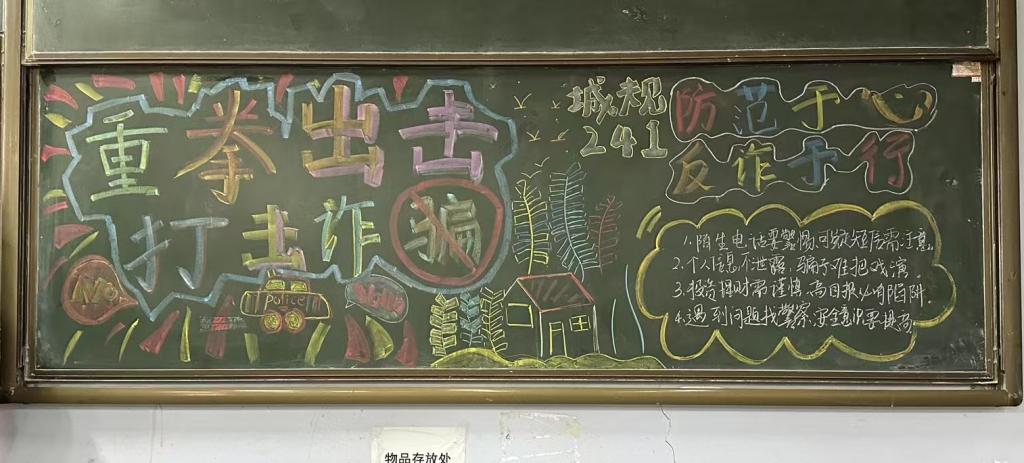 重拳出击
打击诈骗
城规
241
防范于心
反诈于行
No
Police
1.陌生电话要警惕,可疑短信需注意。
2.个人信息不泄露,骗子难把戏演。
3.投资理财需谨慎,高回报必有陷阱.
4.遇到问题找警察,安全意识要提高
物品存放处